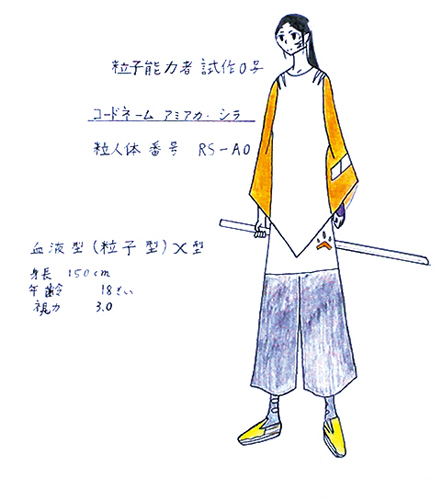 粒子能力者 試作0号
コードネーム アミアカ・シラ
粒人体 番号 RS-A0
血液型(粒子型)X型
身長 150cm
年齢 18さい
視力 3.0